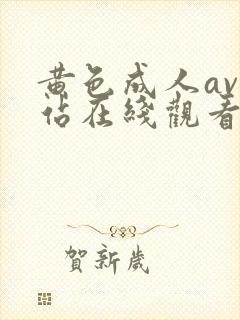 黄色成人av
佔在綫觀看
賀新歲